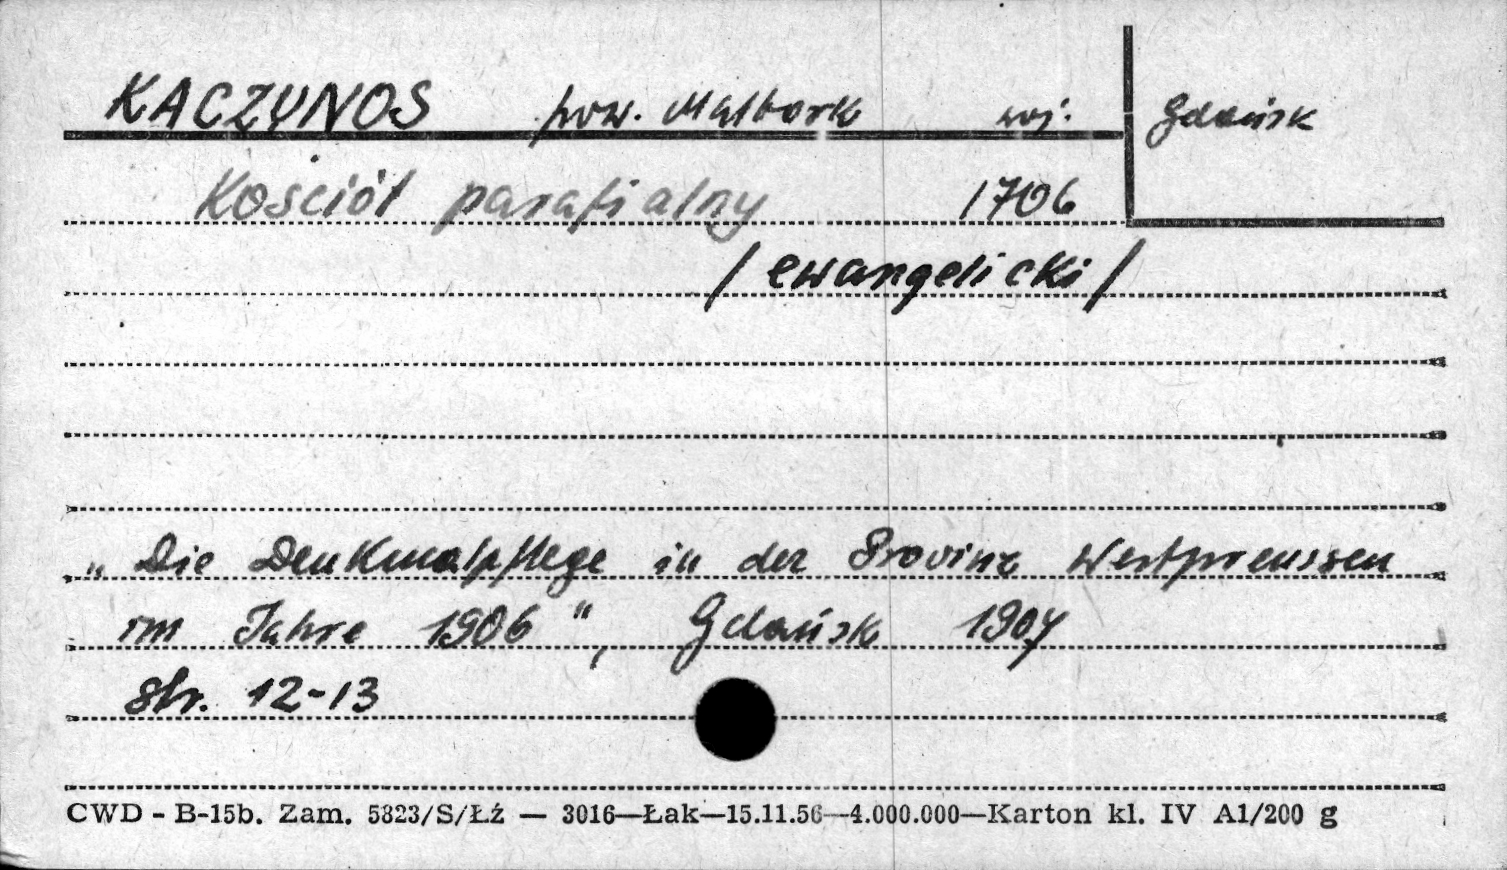 KACZYNOS pow. Malbork woj. Gdańsk
Kościół parafialny 1706
/ewangelicki/
„Die Denkmalpflege in der Provinz Westpreussen
im Jahre 1906“, Gdańsk 1907
str. 12-13
CWD - B-15b. Zam. 5823/S/Łź — 3016—Łak—15.11.56—4.000.000—Karton kl. IV A1/200 g